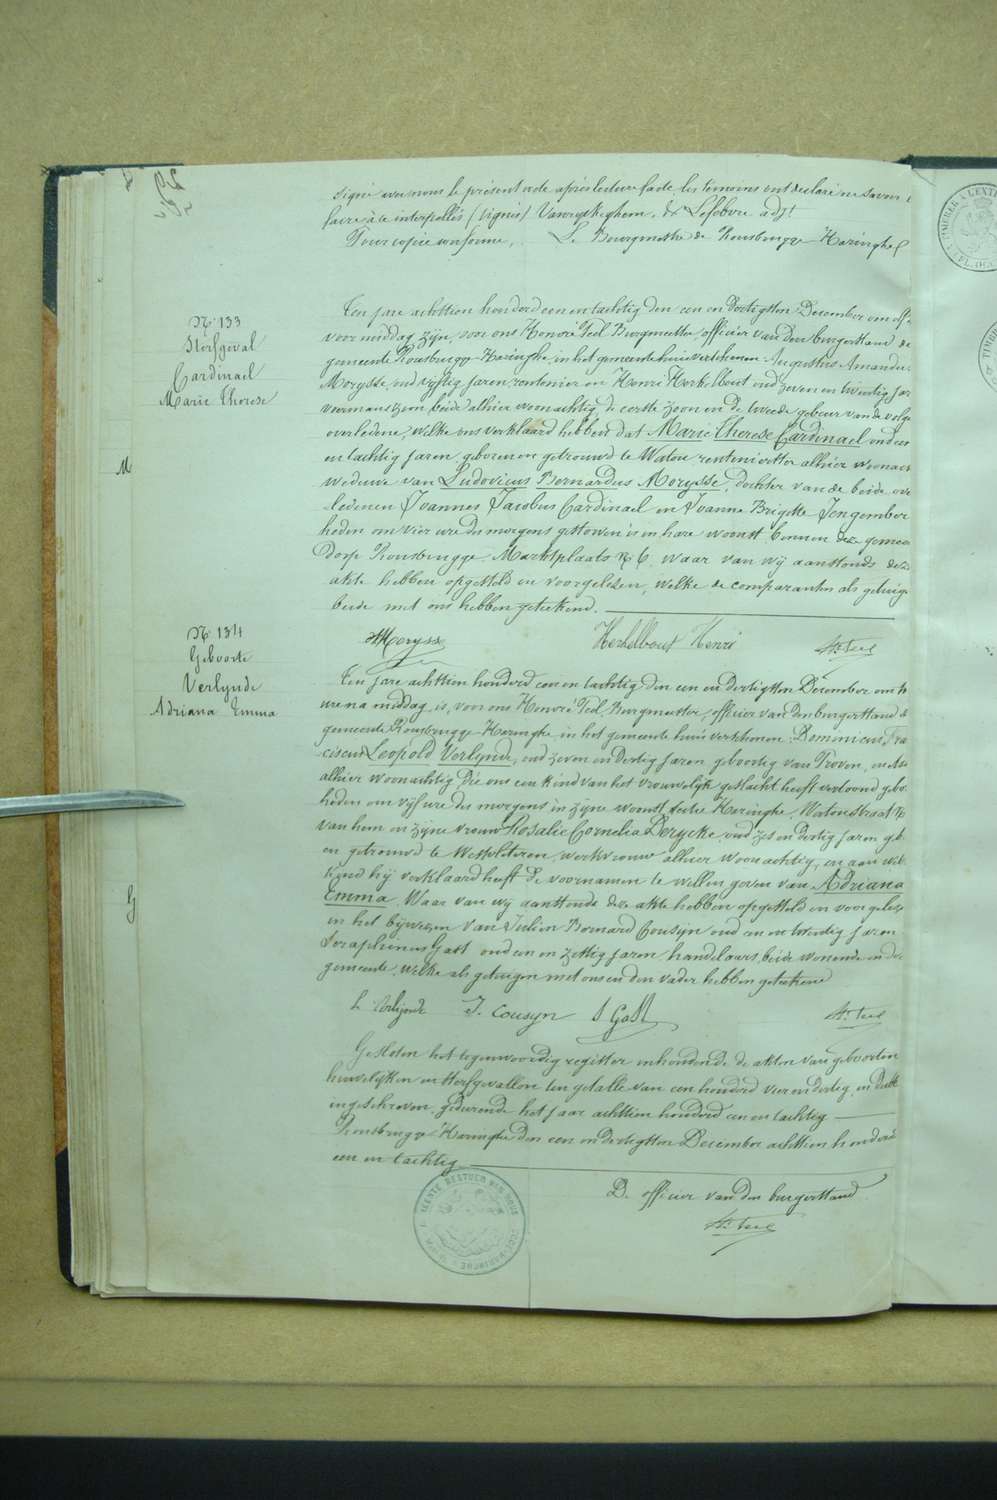 signé avec nous le présent acte après lecture faite, les témoins ont déclaré ne savoir
faire à ce interpellés (signés) Vanryckeghem. & Lefebvre adjt
Pour copie conforme, Le Bourgmestre de Rousbrugge-Haringhe
Nr 133
Sterfgeval
Cardinael
Marie Therese
M
Ten jare achttien honderd een en tachtig den een en dertigsten December om elf
voor middag zijn, voor ons Honoré Teel Burgmeester, officier van den burgerstand de
gemeente Rousbrugge-Haringhe, in het gemeente huis verschenen Augustus Amandus
Morysse, oud vijftig jaren rentenier en Henri Herkelbout oud zeven en twintig jar
voermans zoon, beide alhier woonachtig de eerste zoon en de tweede gebuur van de volge
overledene, welke ons verklaard hebben dat Marie Therese Cardinael oud een
en tachtig jaren geboren en getrouwd te Watou rentenierster alhier woonach
weduwe van Ludovicus Bernardus Morysse, dochter van de beide over
ledenen Joannes Jacobus Cardinael en Joanna Brigitte Jengember
heden om vier ure des morgens gestorven is in hare woonst binnen deze gemeen
Dorp Rousbrugge Marktplaats No 6. waar van wij aanstonds deze
akte hebben opgesteld en voorgelezen, welke de comparanten als getuige
beide met ons hebben geteekend.
A Morysse Herkelbout Henri Hre Teel
Nr 134
Geboorte
Verlynde
Adriana Emma
G
Ten jare achttien honderd een en tachtig den een en dertigsten December om
ure na middag is, voor ons Honoré Teel, Burgmeester, officier van den burgerstand de
gemeente Rousbrugge-Haringhe in het gemeente huis verschenen, Dominicus Fran
ciscus Leopold Verlynde, oud zeven en dertig jaren geboortig van Proven,
alhier woonachtig die ons een kind van het vrouwelijk geslacht heeft vertoond gebo
heden om vijf ure des morgens in zijne woonst sectie Haringhe, Watoustraat No
van hem en zijne vrouw Rosalie Cornelia Derycke, oud zes en dertig jaren geb
en getrouwd te Westvleteren, werkvrouw alhier woonachtig, en aan wel
kind hij verklaard heeft de voornamen te willen geven van Adriana
Emma. Waar van wij aanstonds deze akte hebben opgesteld en voorgelez
in het bijwezen van Julien Bernard Cousyn oud een en twintig jaren
Seraphinus Gast oud een en zestig jaren, handelaars, beide wonende in de
gemeente, welke als getuigen met ons en den vader hebben geteekend
L Verlynde J. Cousyn S Gast Hre Teel
Gesloten het tegenwoordig register inhoudende de akten van geboorten
huwelijken en sterfgevallen ten getalle van een honderd vier en dertig, in dubb
ingeschreven, gedurende het jaar achttien honderd een en tachtig
Rousbrugge-Haringhe den een en dertigsten December achttien honderd
een en tachtig
De officier van den burgerstand
Hre Teel